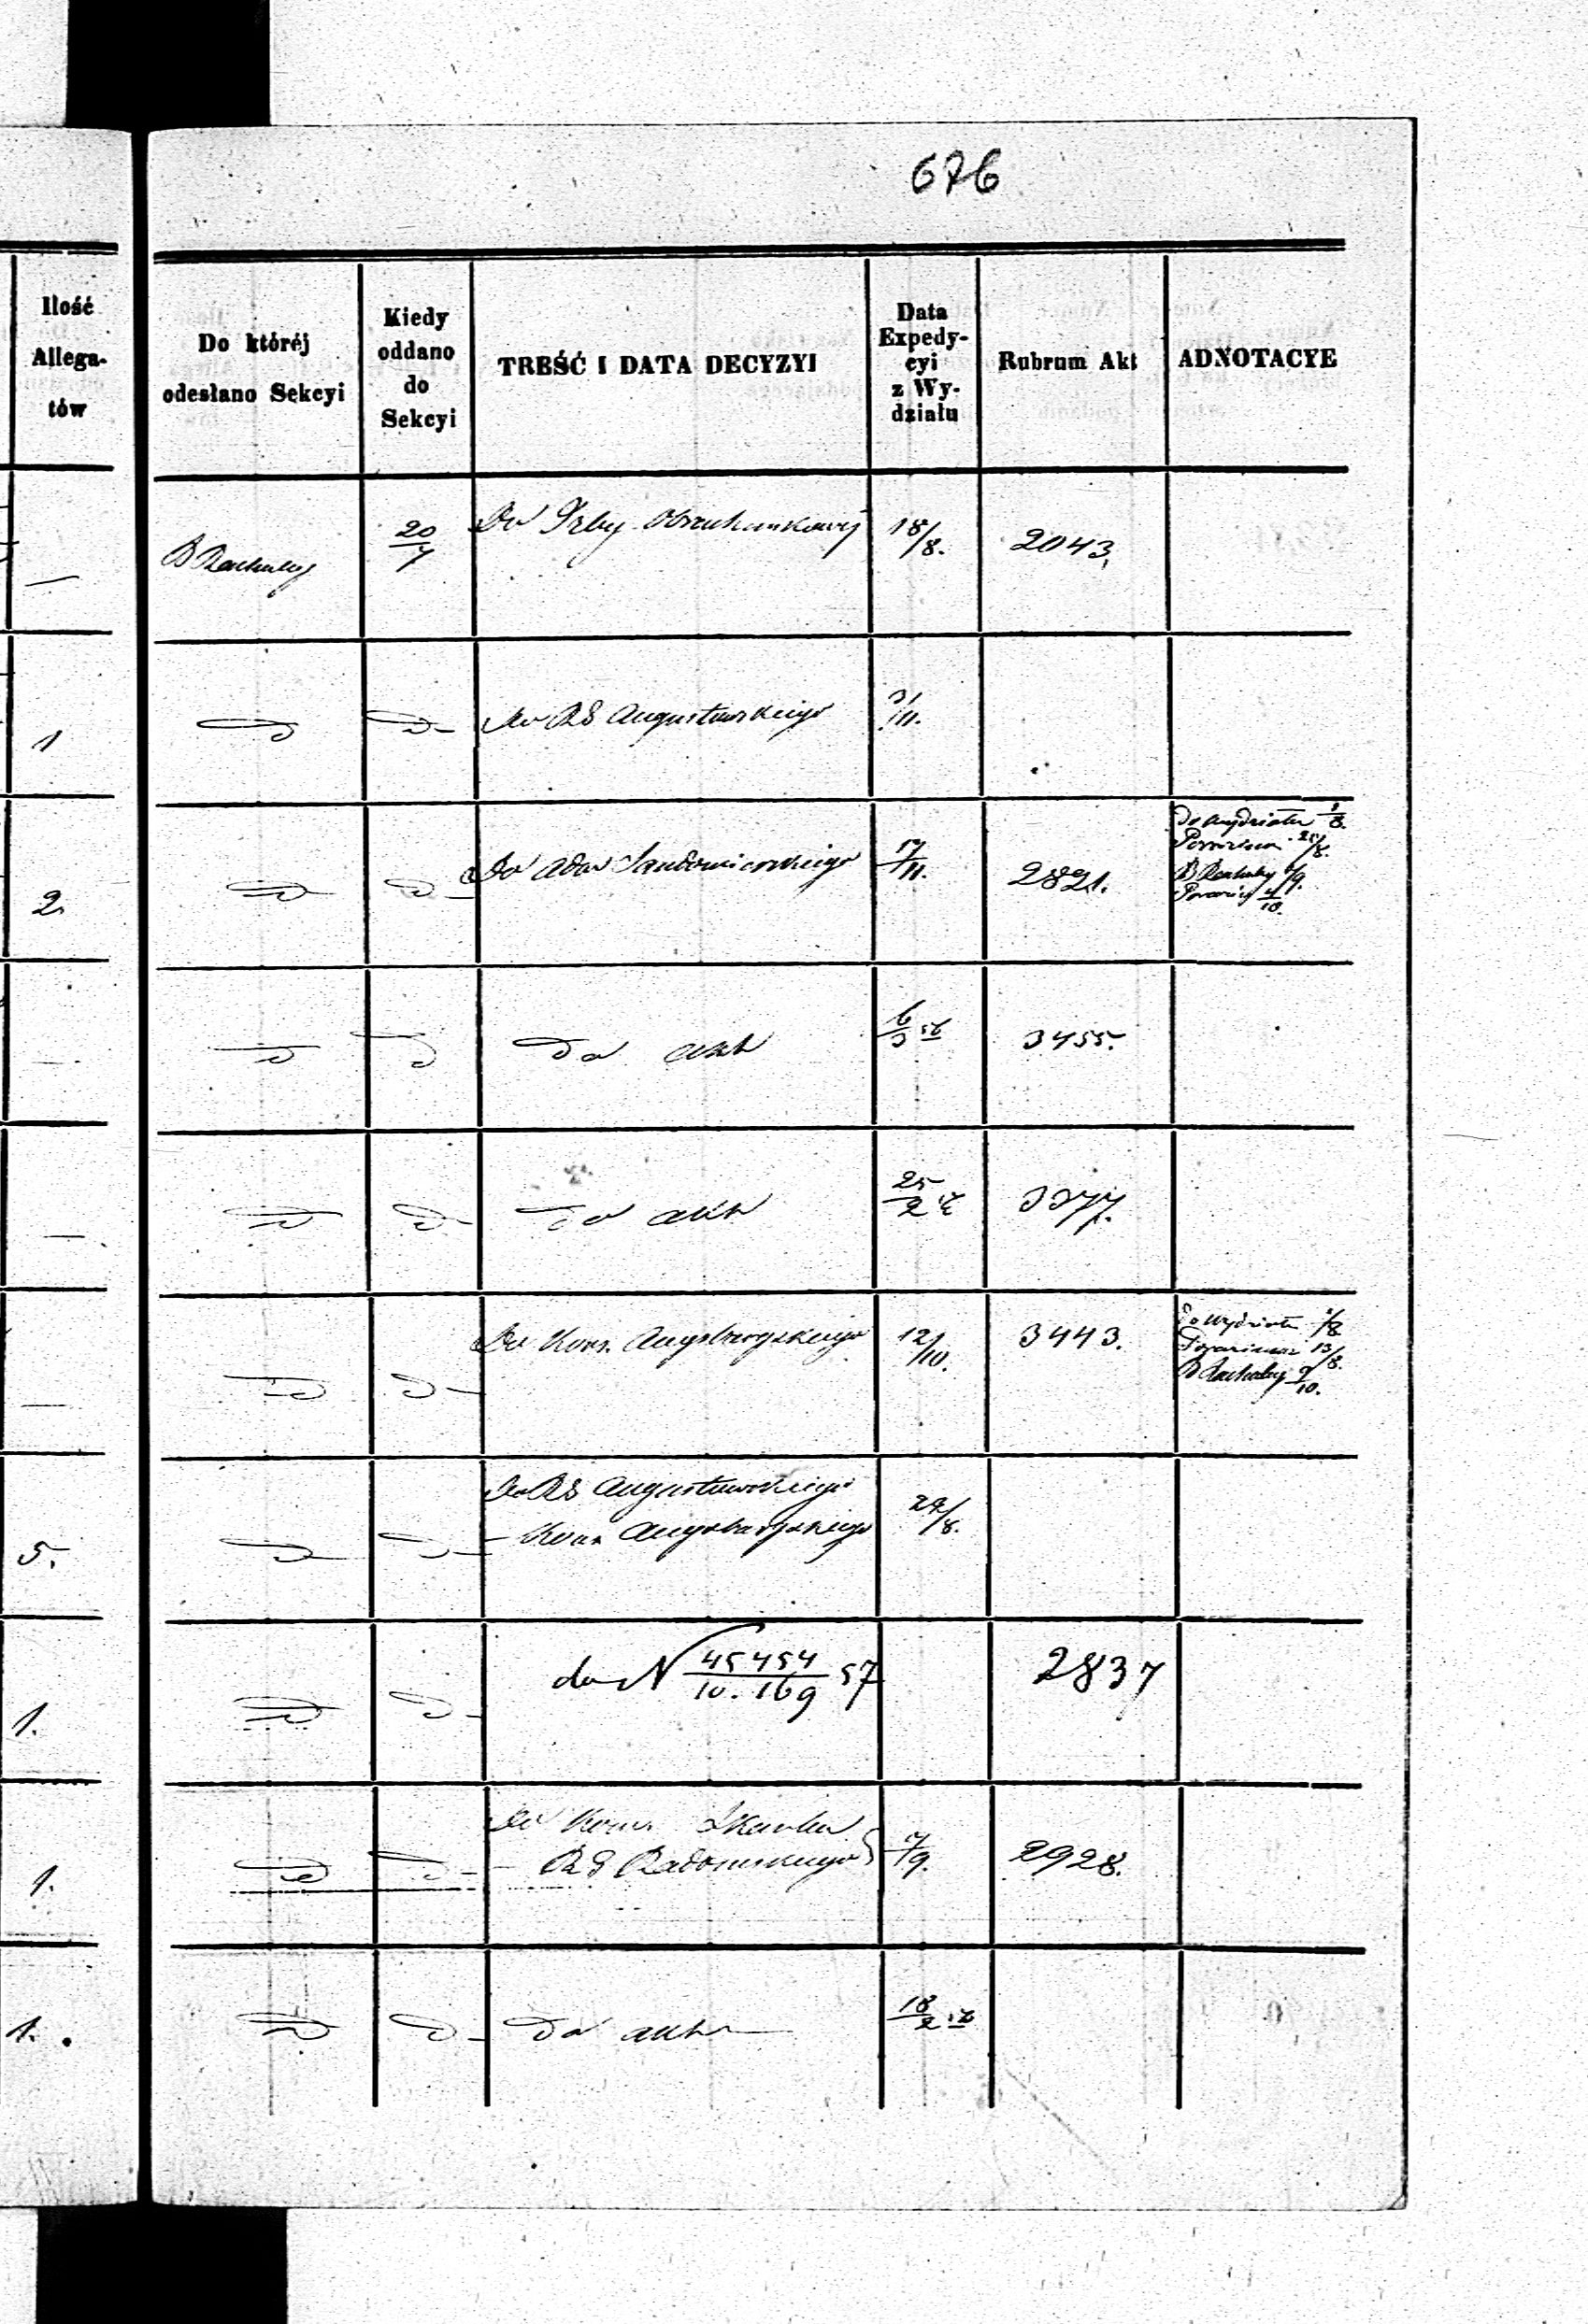 676
Ilość
Allega-
tów
Do któréj
odesłano Sekcyi
Kiedy
oddano
do
Sekcyi
TREŚĆ I DATA DECYZYI
Data
Expedy-
cyi
z Wy-
działu
Rubrum Akt
ADNOTACYE
— B Rachuby 20/7 Do Izby Obrachunkowej 18/8. 2043,
1 Do RG Augustowskiego 3/11.
2. Do Adm Sandomierskiego 17/11. 2821.
Do Wydziału 1/8.
25/8.
B Rachuby 6/9.
4/10.
— do akt 6/3 58 3455.
— do akt 25/2 58 3377.
— Do Kons. Augsburgskiego 12/10. 3443.
Do Wydziału 1/8
13/8.
B Rachuby 9/10.
5. Do RG Augustowskiego
— Kons Augsburgskiego 24/8.
1. do N 45454/10.169 57 2837
1. Do Komis. Skarbu
— RG Radomskiego 7/9. 2928.
1. do akt 18/2 58